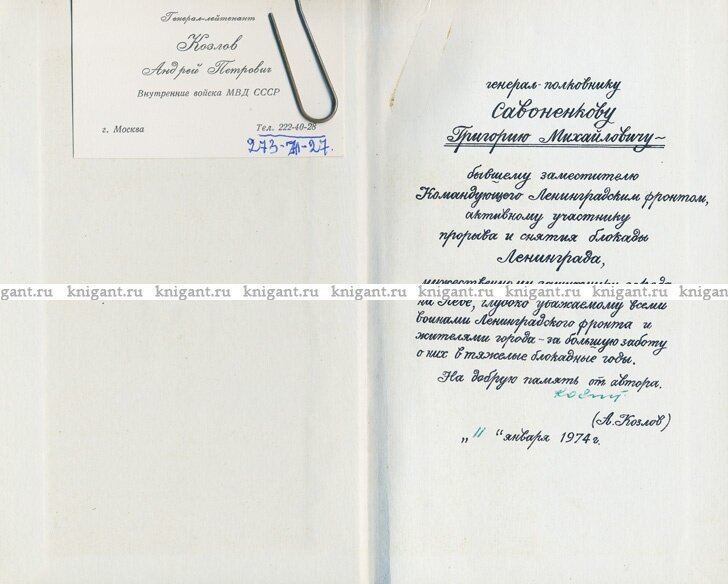 Генерал-лейтенант
Козлов
Андрей Петрович
Внутренние войска МВД СССР
г. Москва
Тел. 222-40-28
273-71-27.
генерал-полковнику
Савоненкову
Григорию Михайловичу –
бывшему заместителю
Командующего Ленинградским фронтом,
активному участнику
прорыва и снятия блокады
Ленинграда,
мужественному защитнику города
knigant.ru knigant.ru knigant.ru knigant.ru knigant.ru knigant.ru knigant.ru knigant.ru
на Неве, глубоко уважаемому всеми
воинами Ленинградского фронта и
жителями города – за большую заботу
о них в тяжелые блокадные годы.
На добрую память от автора.
(А. Козлов)
„11“ января 1974 г.